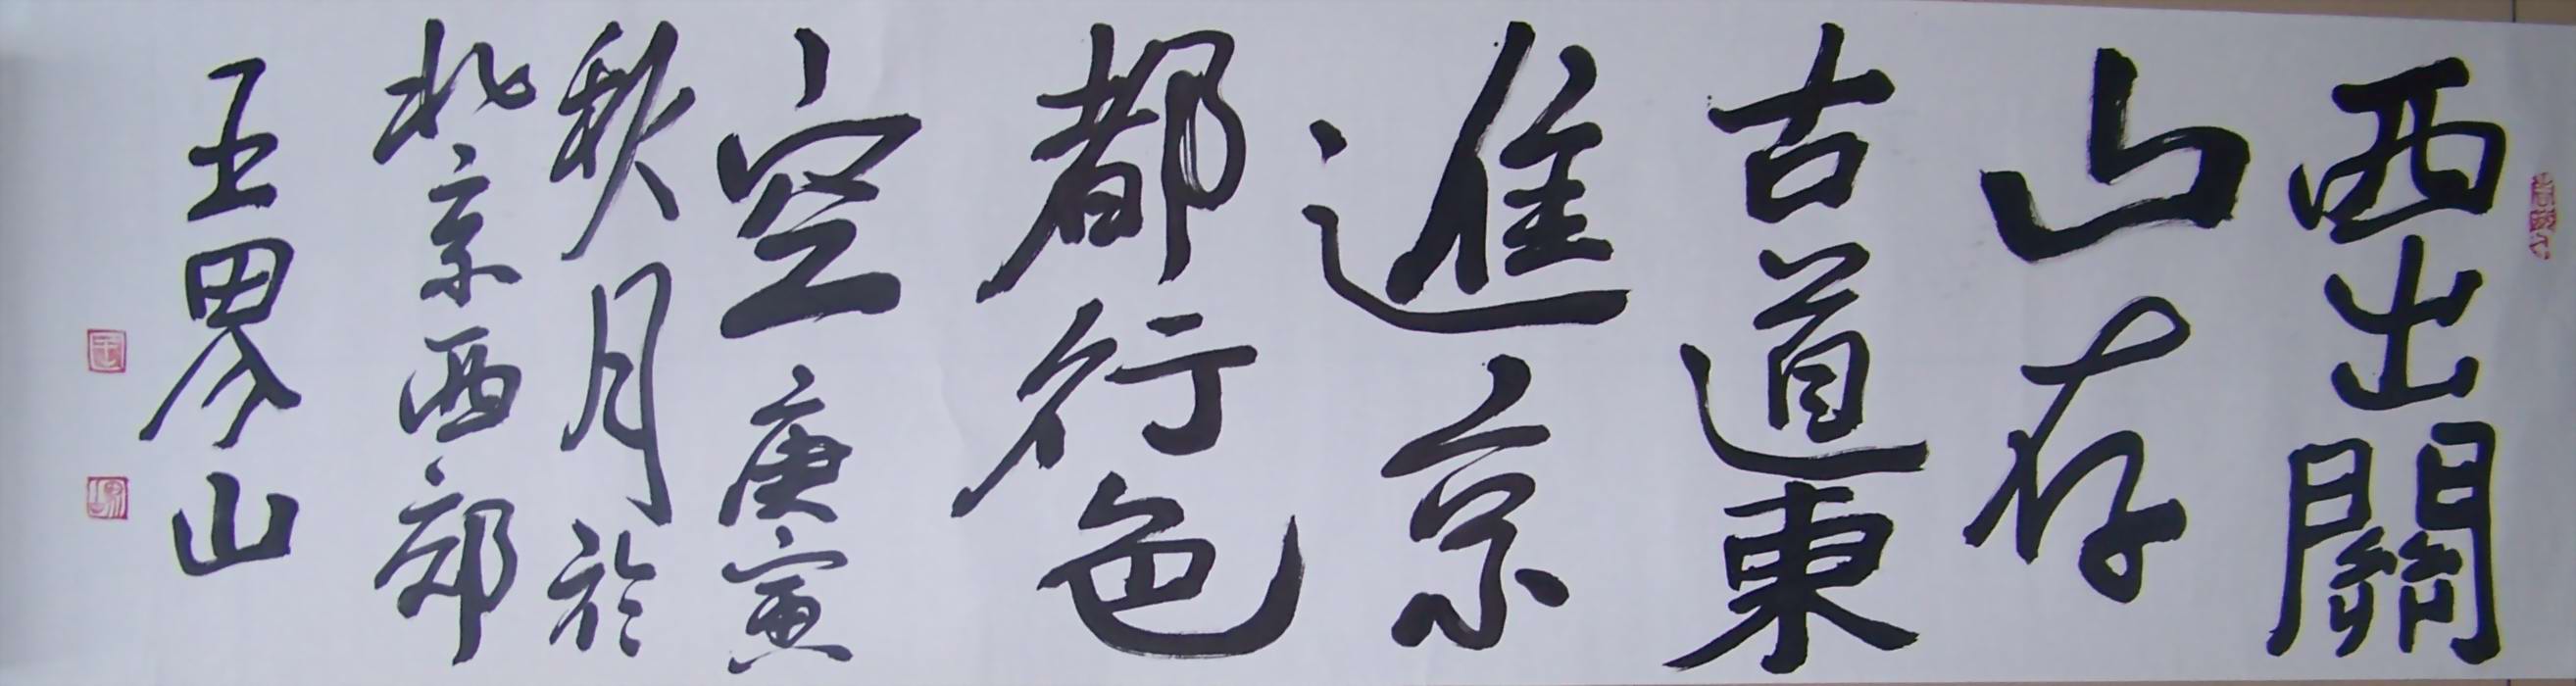 西出關
山存
古道東
進京
都行色
空 庚寅
秋月於
北京西郊
王界山